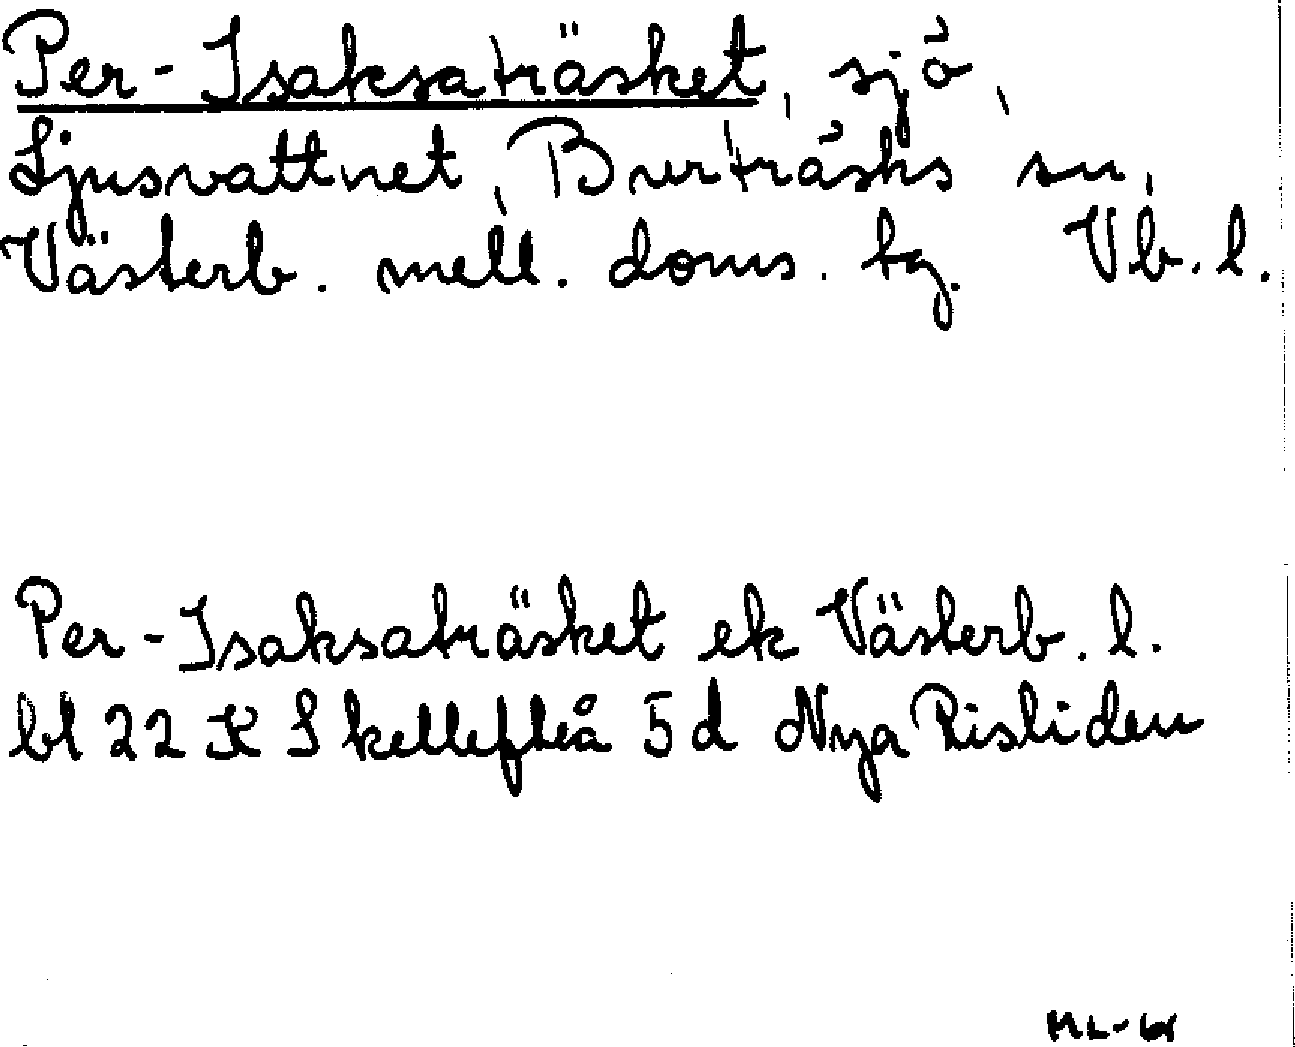 Per-Isaksaträsket, sjö,
Ljusvattnet, Burträsks sn,
Västerb. mell. doms. tg. Vb. l.
Per-Isaksaträsket ek Västerb. l.
bl 22 K Skellefteå 5d Nya Risliden